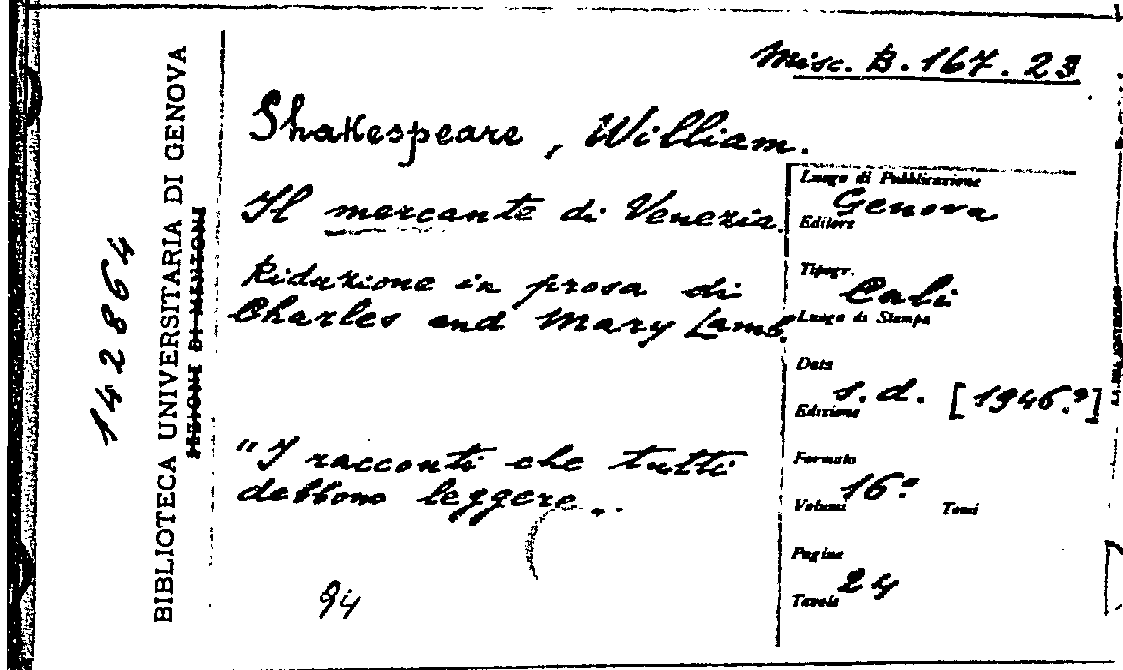 Misc. B. 167. 23
Shakespeare, William.
Il mercante di Venezia.
Riduzione in prosa di
Charles and Mary Lamb.
"I racconti che tutti
debbono leggere„.
94
Luogo di Pubblicazione
Genova
Editore
Tipogr.
Cali
Luogo di Stampa
Data
s. d. [1946.?]
Edizione
Formato
16°
Volumi Tomi
Pagine
24
Tavole
BIBLIOTECA UNIVERSITARIA DI GENOVA
142864